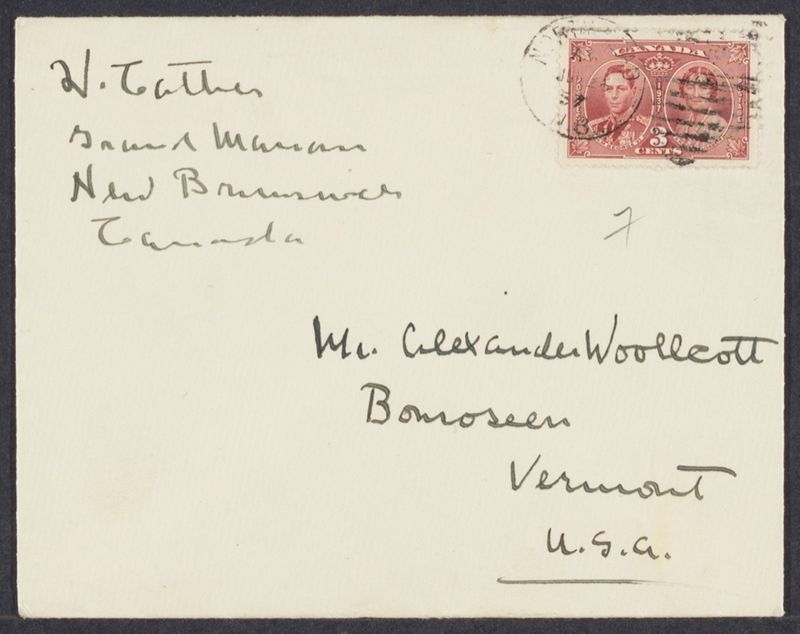 W. Cather
Grand Manan
New Brunswick
Canada
CANADA
1937
3
CENTS
7
Mr. Alexander Woollcott
Bomoseen
Vermont
U.S.A.